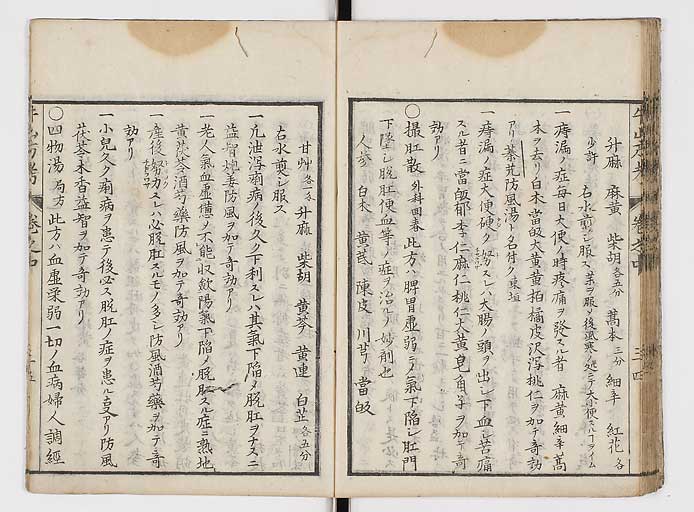 升麻 麻黄 柴胡各五分 藁本三分 細辛 紅花各
少許 右水煎シ服ス
一痔漏ノ症毎日大便ノ時疼痛ヲ發スル者 麻黄細辛藁
本ヲ去リ白朮當皈大黄黄柏橘皮沢泻桃仁ヲ加テ奇効
アリ 秦艽防風湯ト名付ク東垣
一痔漏ノ症大便硬ク努スレハ大腸ノ頭ヲ出シ下血シ苦痛
スル者ニ當皈郁李仁麻仁桃仁大黄皂角子ヲ加テ奇
効アリ
○撮肛散 外科回春 此方ハ脾胃虚弱ニノ氣下陥シ肛門
下墜シ脱肛便血等ノ症ヲ治ルノ妙劑也
人参 白朮 黄芪 陳皮 川芎 當皈
甘艸各一匁 升麻 柴胡 黄芩 黄連 白芷各五分
右水煎シ服ス
一凢泄泻痢病ノ後久ク下利スレハ其氣下陥ノ脱肛ヲナスニ
益智煨姜防風ヲ加テ奇効アリ
一老人氣血虚憊ノ不能収歛陽氣下陥ノ脱肛スル症ニ熟地
黄茯苓酒芍藥防風ヲ加テ奇効アリ
一産後努力スレハ必脱肛スルモノ多シ防風酒芍藥ヲ加テ奇
効アリ
一小兒久ク痢病ヲ患テ後必ス脱肛ノ症ヲ患ル支アリ防風
茯苓木香益智ヲ加テ奇効アリ
○四物湯 局方 此方ハ血虚柔弱一切ノ血病婦人調經
牛山方考 卷之中